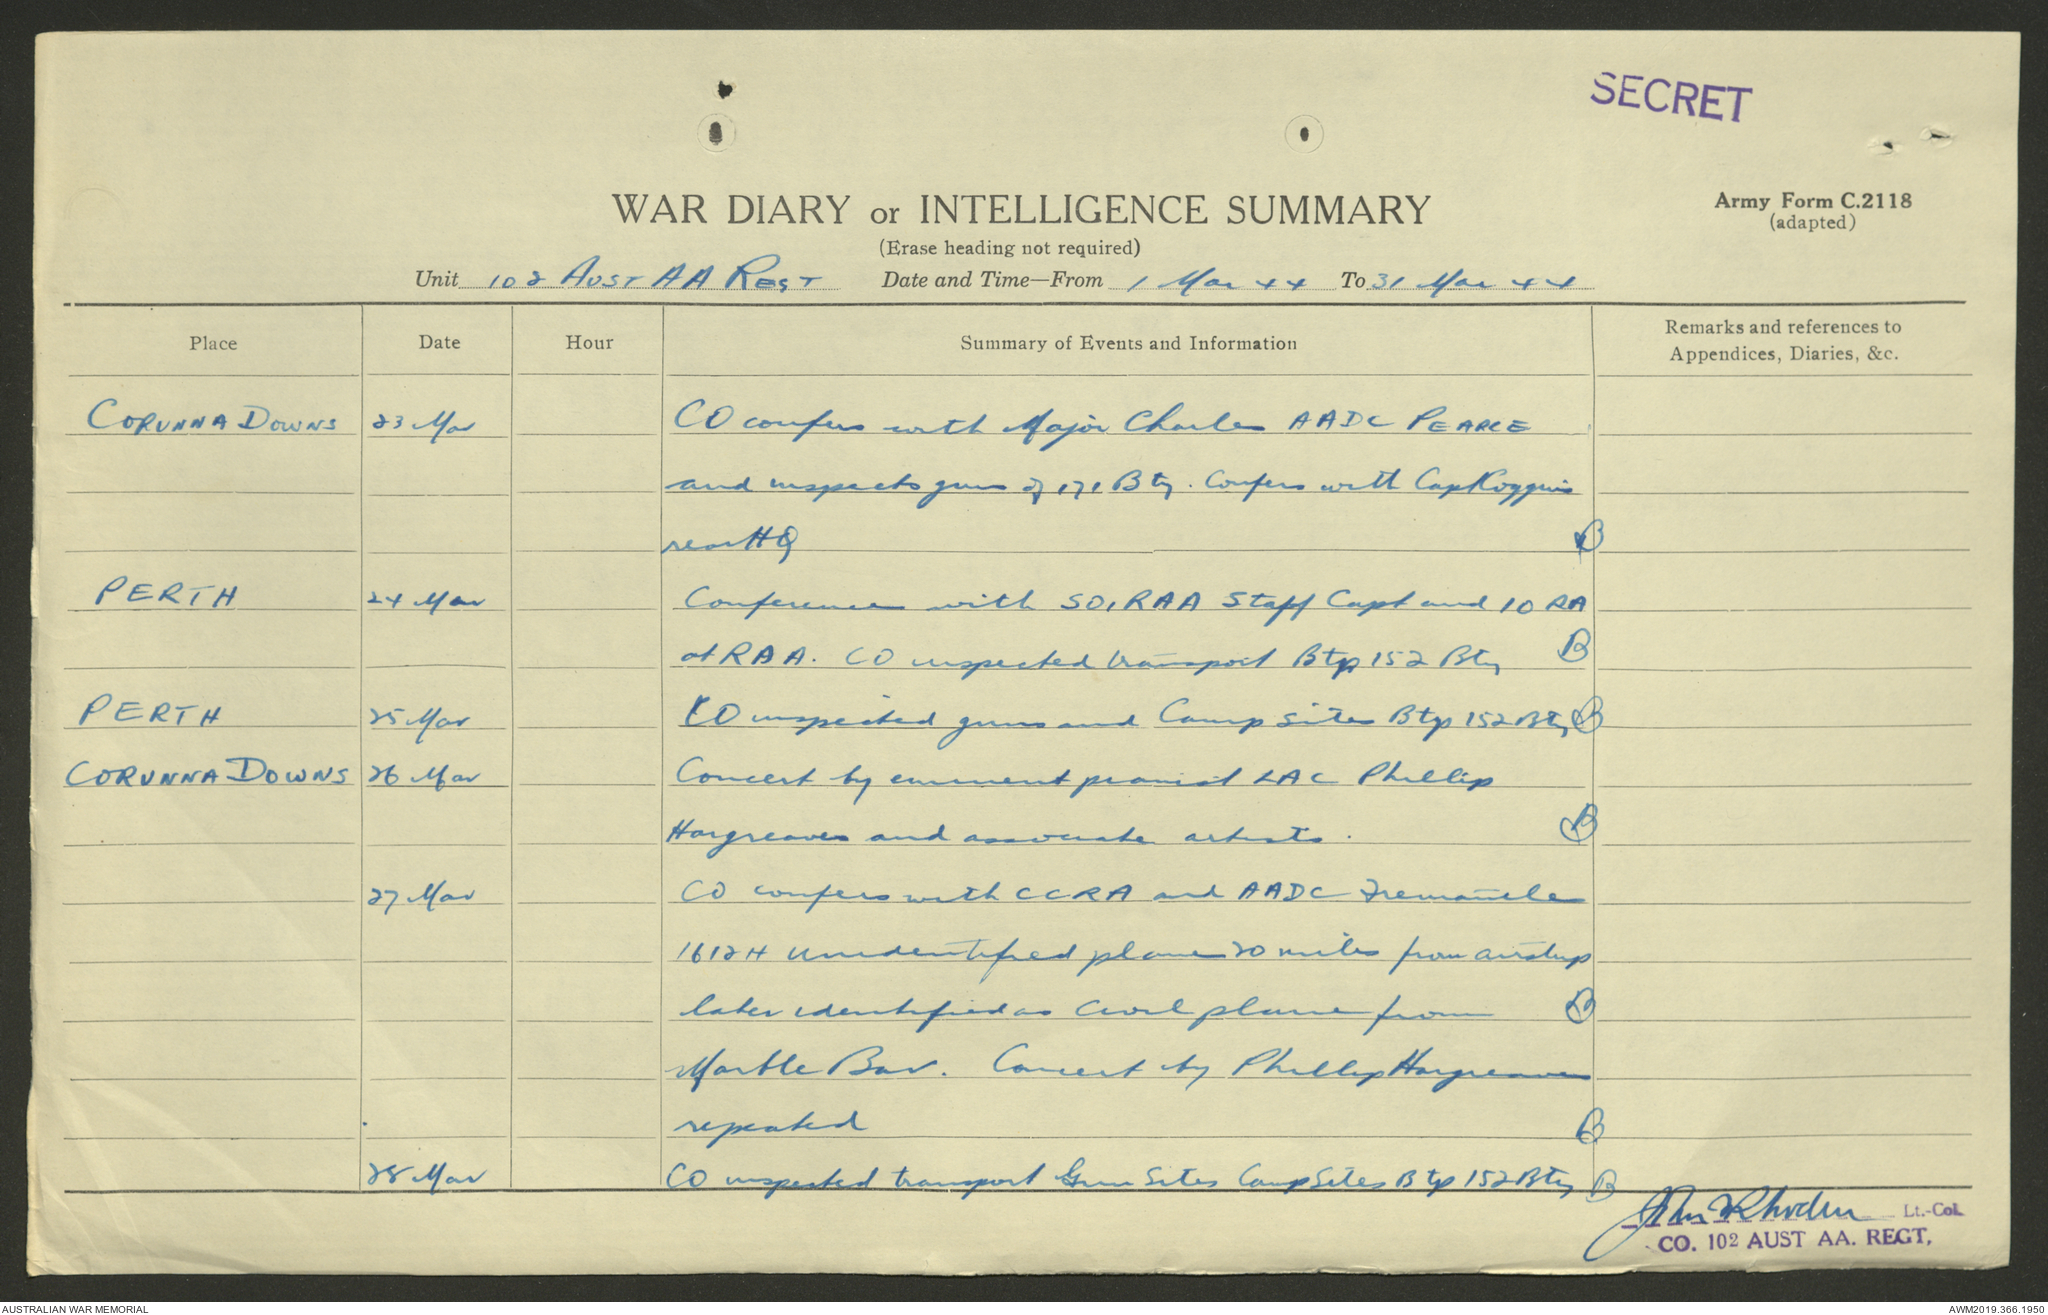 SECRET
WAR DIARY or INTELLIGENCE SUMMARY
Army Form C.2118
(adapted)
(Erase heading not required)
Unit 102 AUST AA REGT Date and Time—From 1 Mar 44 To 31 Mar 44
Place Date Hour Summary of Events and Information Remarks and references to
Appendices, Diaries, &c.
CORUNNA DOWNS 23 Mar CO confers with Major Charles AADC PEARCE
and inspects guns of 171 Bty. Confers with Cap
rear HQ B
PERTH 24 Mar Conference with SO, RAA Staff Capt and IO RA
at RAA. CO inspected transport Btp 152 Bty B
PERTH 25 Mar CO inspected guns and Camp sites Btp 152 Bty B
CORUNNA DOWNS 26 Mar Concert by eminent pianist LAC Phillip
Hargreaves and associate artists. B
27 Mar CO confers with CCRA and AADC Fremantle
1612H unidentified plane 20 miles from airstrip
later identified as Civil plane from B
Marble Bar. Concert by Phillip Hargreaves
repeated B
28 Mar CO inspected transport Gun Sites Camp Sites Btp 152 Bty B
John Rhoden Lt.-Col.
CO. 102 AUST AA. REGT,
AUSTRALIAN WAR MEMORIAL AWM2019.366.1950